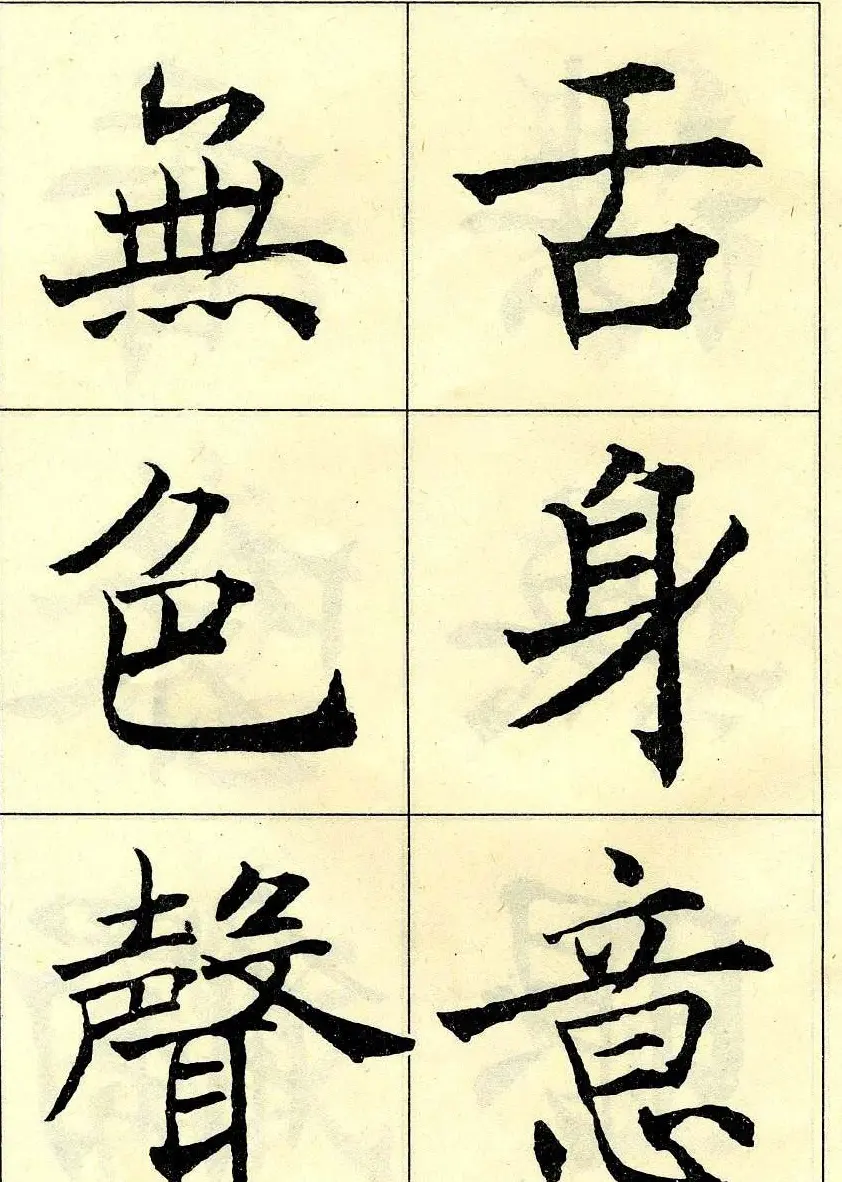 舌身意
無色聲